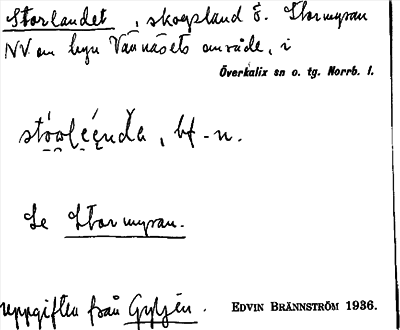 Storlandet, skogsland ö. Stormyran
NV om byn Vännäsets område, i
Överkalix sn o. tg. Norrb. l.
bf. n.
Se Stormyran.
uppgiften från Gyljén.
EDVIN BRÄNNSTRÖM 1936.